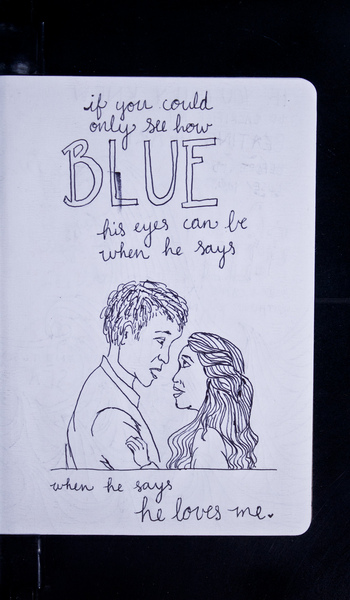 if you could
only see how
BLUE
his eyes can be
when he says
when he says
he loves me.